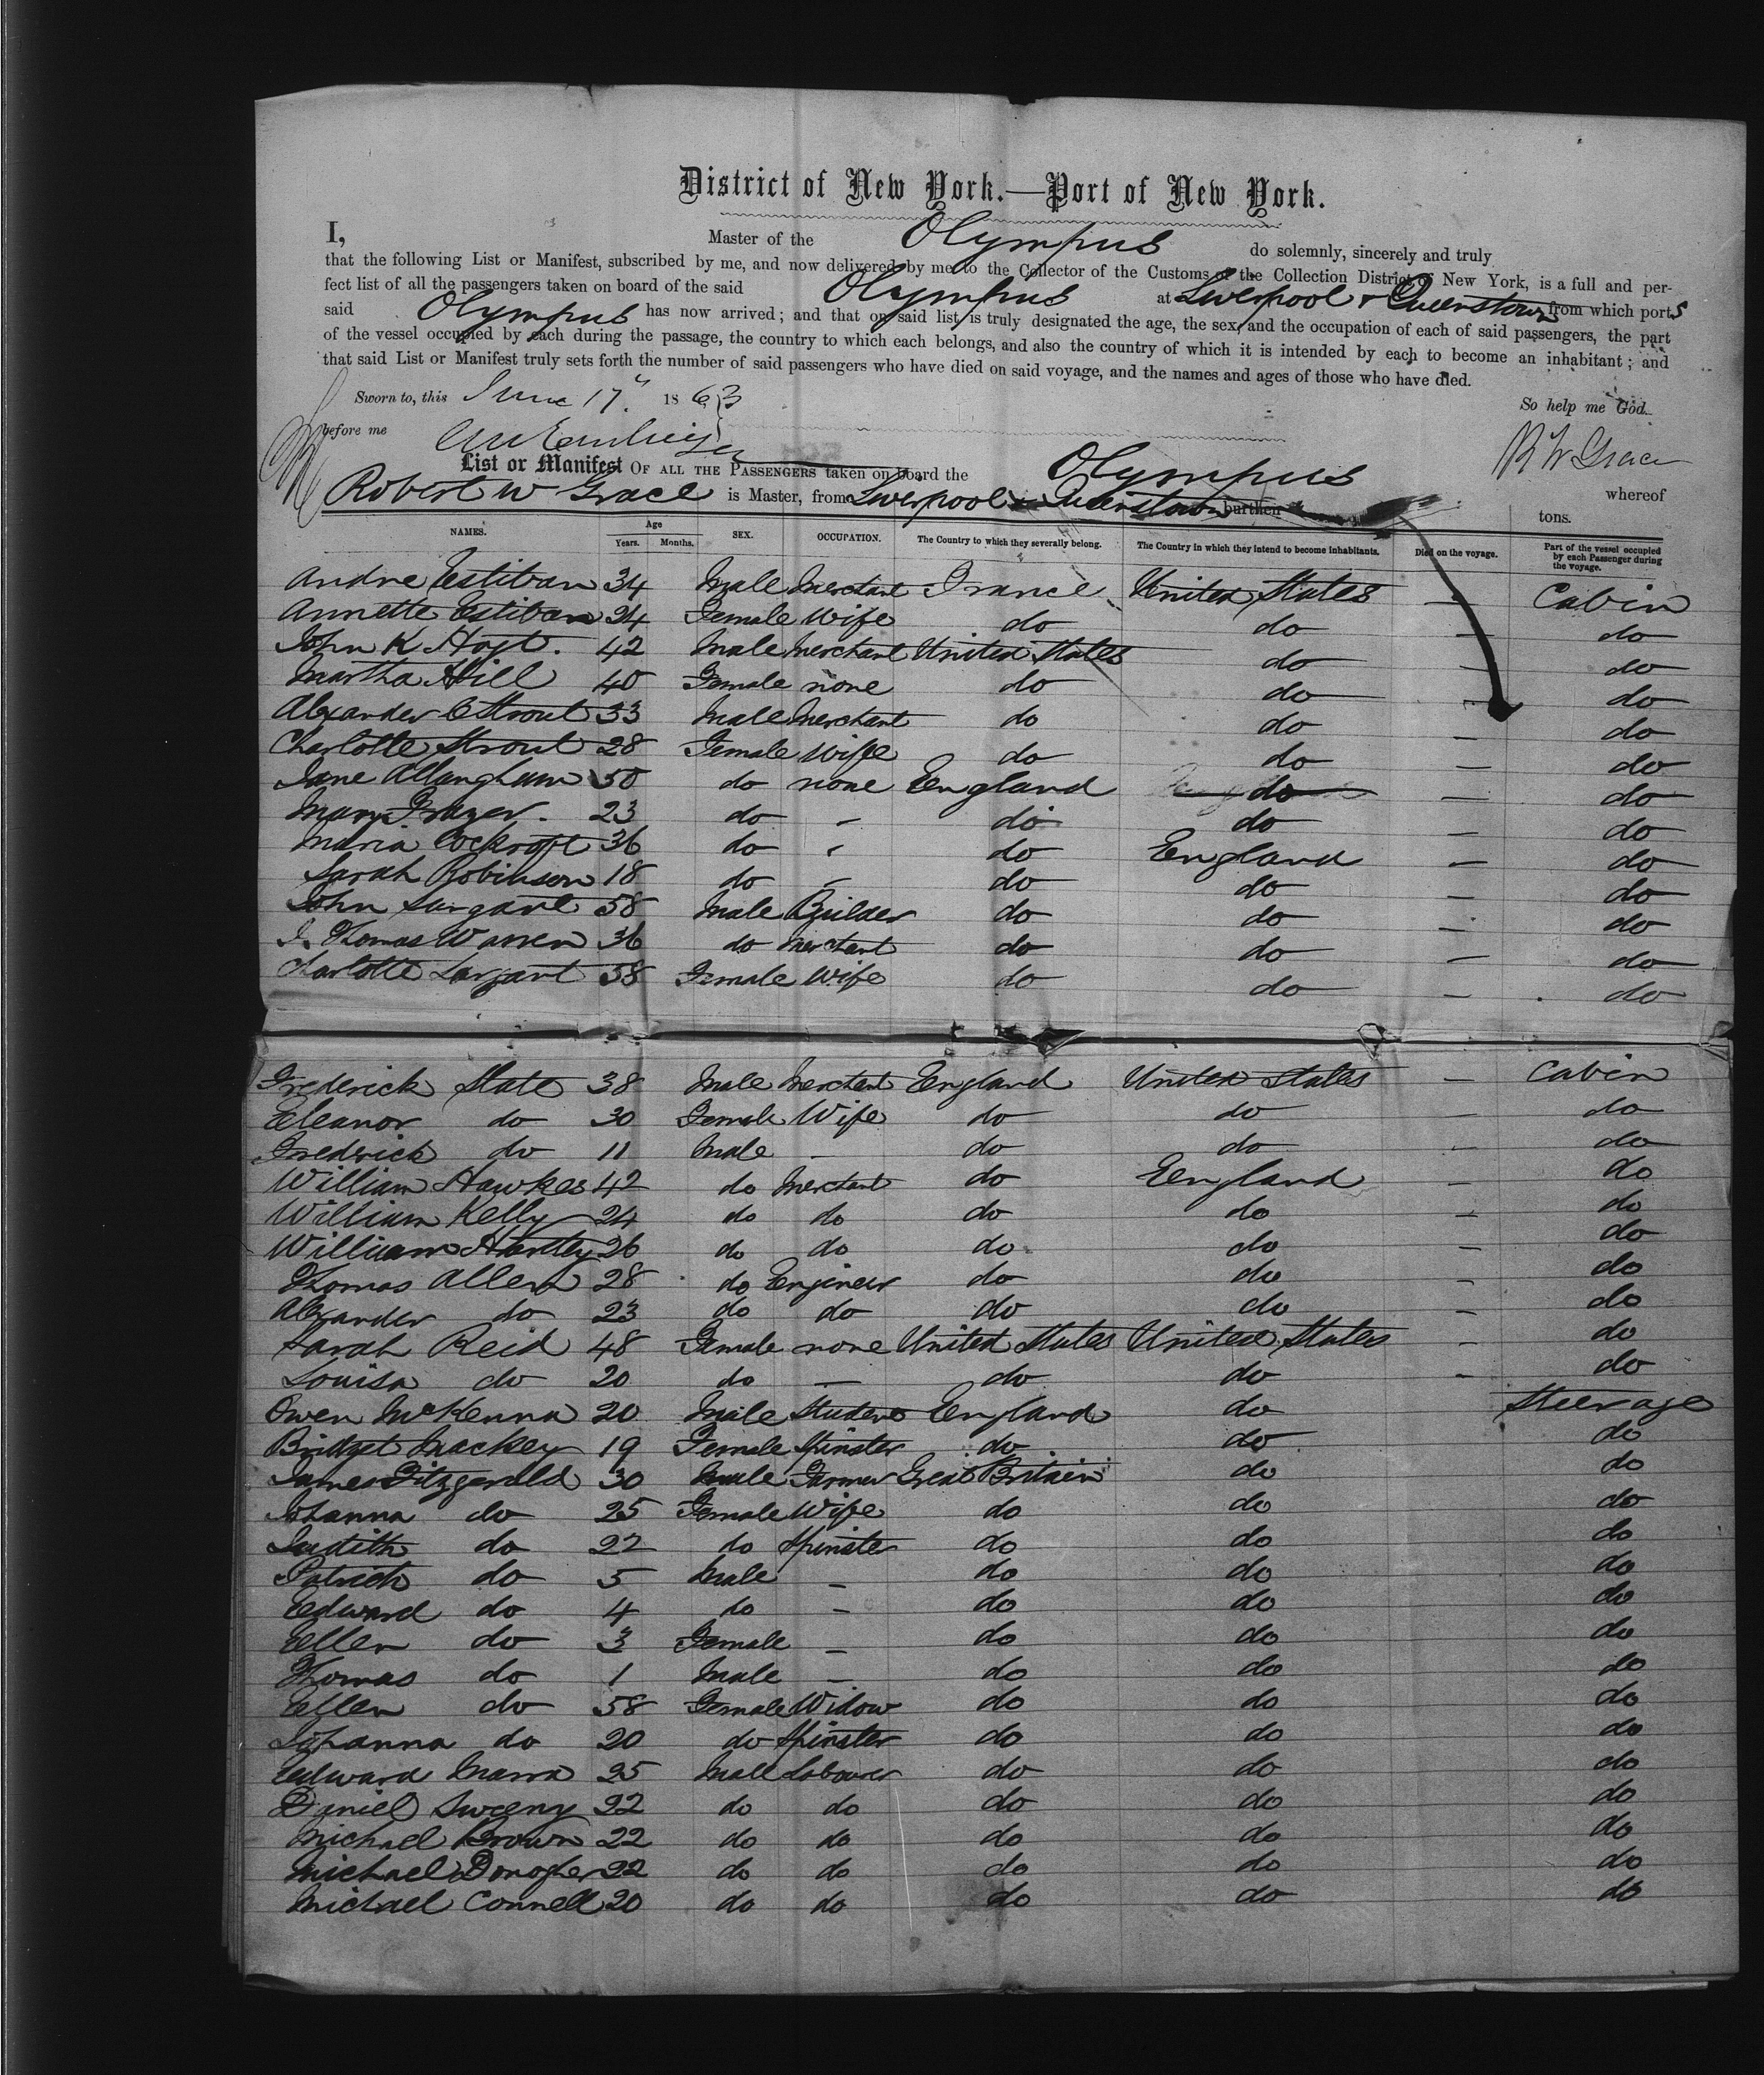 District of New York.—Port of New York.
I, Master of the Olympus do solemnly, sincerely and truly
that the following List or Manifest, subscribed by me, and now delivered by me to the Collector of the Customs of the Collection District of New York, is a full and per-
fect list of all the passengers taken on board of the said Olympus at Liverpool & Queenstown from which ports
said Olympus has now arrived; and that on said list is truly designated the age, the sex, and the occupation of each of said passengers, the part
of the vessel occupied by each during the passage, the country to which each belongs, and also the country of which it is intended by each to become an inhabitant; and
that said List or Manifest truly sets forth the number of said passengers who have died on said voyage, and the names and ages of those who have died.
Sworn to, this June 17" 1863 So help me God.
before me R W Grace
List or Manifest OF ALL THE PASSENGERS taken on board the Olympus whereof
Robert W Grace is Master, from Liverpool & Queenstown burthen tons.
NAMES. Age Years. Months. SEX. OCCUPATION. The Country to which they severally belong. The Country in which they intend to become inhabitants. Died on the voyage. Part of the vessel occupied by each Passenger during the voyage.
Andre Estiban 34 Male Merchant France United States — Cabin
Annette Estiban 24 Female Wife do do — do
John K Hoyt. 42 Male Merchant United States do — do
Martha Hill 40 Female none do do — do
Alexander C Strout 33 Male Merchant do do — do
Charlotte Strout 28 Female Wife do do — do
Jane Allangham 50 do none England do — do
Mary Frazer. 23 do - do do — do
Maria Cockroft 36 do - do England — do
Sarah Robinson 18 do - do do — do
John Sargant 58 Male Builder do do — do
J. Thomas Warren 36 do Merchant do do — do
Charlotte Sargant 58 Female Wife do do — do
Frederick Slate 38 Male Merchant England United States — Cabin
Eleanor do 30 Female Wife do do — do
Frederick do 11 Male - do do — do
William Hawkes 42 do Merchant do England — do
William Kelly 24 do do do do — do
William Hartley 26 do do do do — do
Thomas Allen 28 do Engineer do do — do
Alexander do 23 do do do do — do
Sarah Reid 48 Female none United States United States — do
Louisa do 20 do — do do — do
Owen McKenna 20 Male Student England do Steerage
Bridget Mackey 19 Female Spinster do do do
James Fitzgerald 30 Male Farmer Great Britain do do
Johanna do 25 Female Wife do do do
Judith do 22 do Spinster do do do
Patrick do 5 Male - do do do
Edward do 4 do - do do do
Ellen do 3 Female - do do do
Thomas do 1 Male - do do do
Ellen do 58 Female Widow do do do
Johanna do 20 do Spinster do do do
Edward Marra 25 Male Labourer do do do
Daniel Sweeny 22 do do do do do
Michael Brown 22 do do do do do
Michael Donogher 22 do do do do do
Michael Connell 20 do do do do do